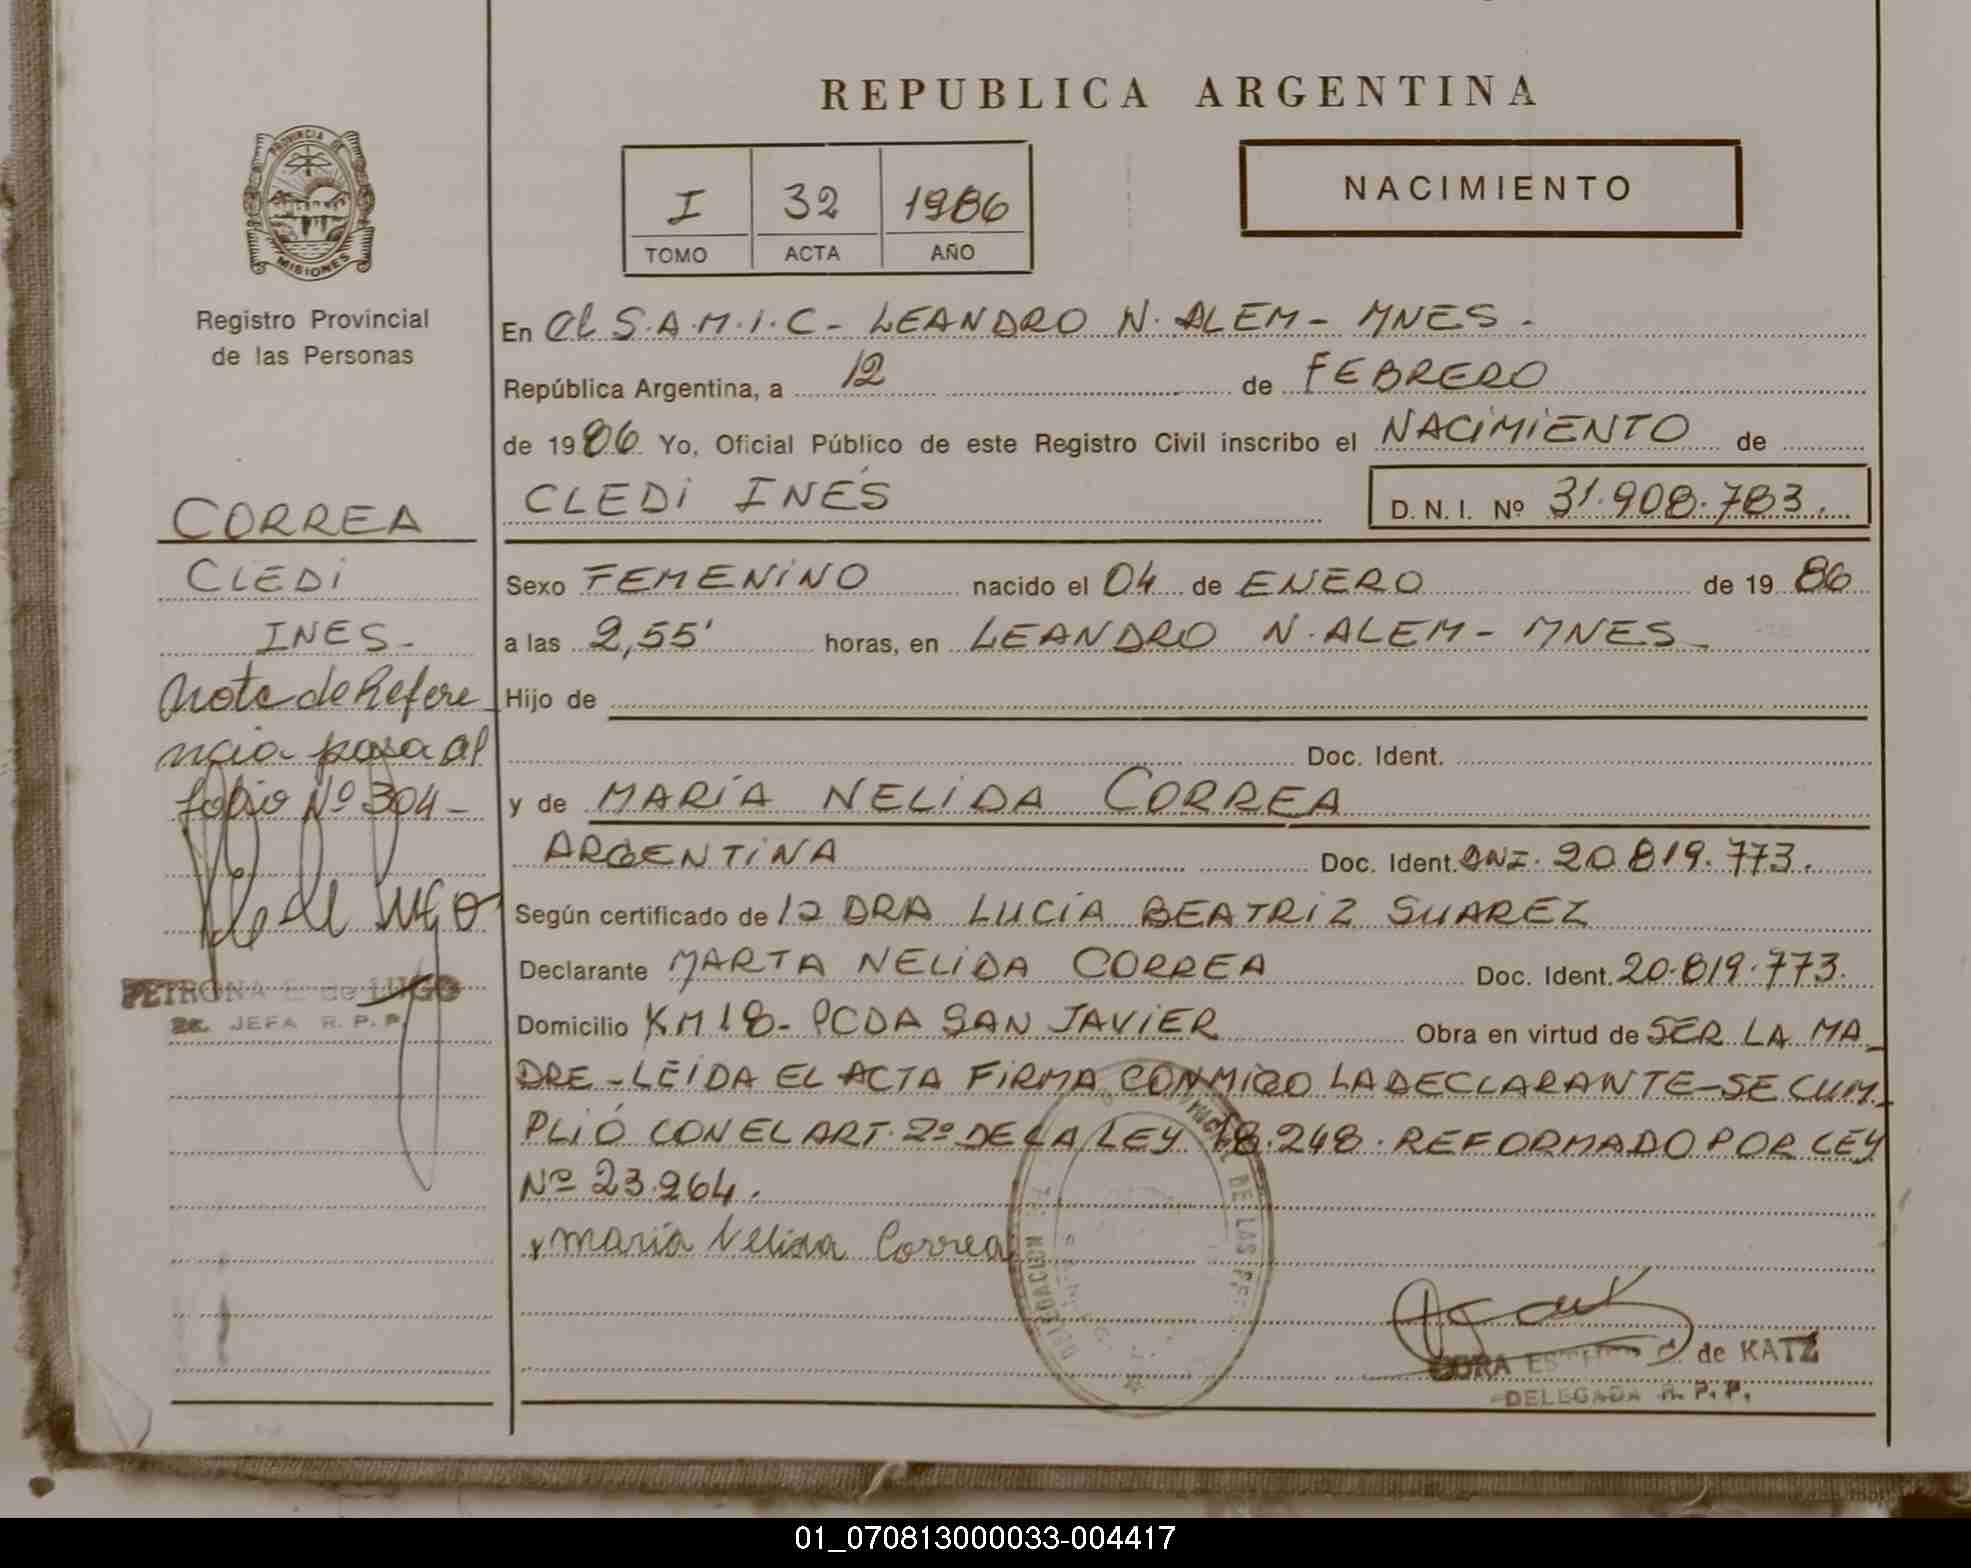 REPUBLICA ARGENTINA
PROVINCIA DE
MISIONES
Registro Provincial
de las Personas
I 32 1986
TOMO ACTA AÑO
NACIMIENTO
En el S.A.M.I.C- LEANDRO N. ALEM- MNES.
República Argentina, a 12 de FEBRERO
de 1986 Yo, Oficial Público de este Registro Civil inscribo el NACIMIENTO de
CLEDI INÉS D.N.I. Nº 31.908.783.
Sexo FEMENINO nacido el 04 de ENERO de 1986
a las 2,55' horas, en LEANDRO N. ALEM- MNES-
Hijo de
Doc. Ident.
y de MARÍA NELIDA CORREA
ARGENTINA Doc. Ident. DNI. 20.819.773.
Según certificado de la DRA LUCÍA BEATRIZ SUAREZ
Declarante MARTA NELIDA CORREA Doc. Ident. 20.819.773.
Domicilio KM 18- PCDA SAN JAVIER Obra en virtud de SER LA MA_
DRE-LEIDA EL ACTA FIRMA CONMIGO LA DECLARANTE-SE CUM_
PLIÓ CON EL ART. 2º DE LA LEY 18.248. REFORMADO POR LEY
Nº 23.264.
x maría Nelida Correa
DELEGACION DE LAS
de KATZ
DELEGADA R. P. P.
CORREA
CLEDI
INES-
Nota de Refere_
ncia pasa al
folio Nº 304-
de Lugo
PETRONA E. de LUGO
JEFA R. P. P.
01_070813000033-004417